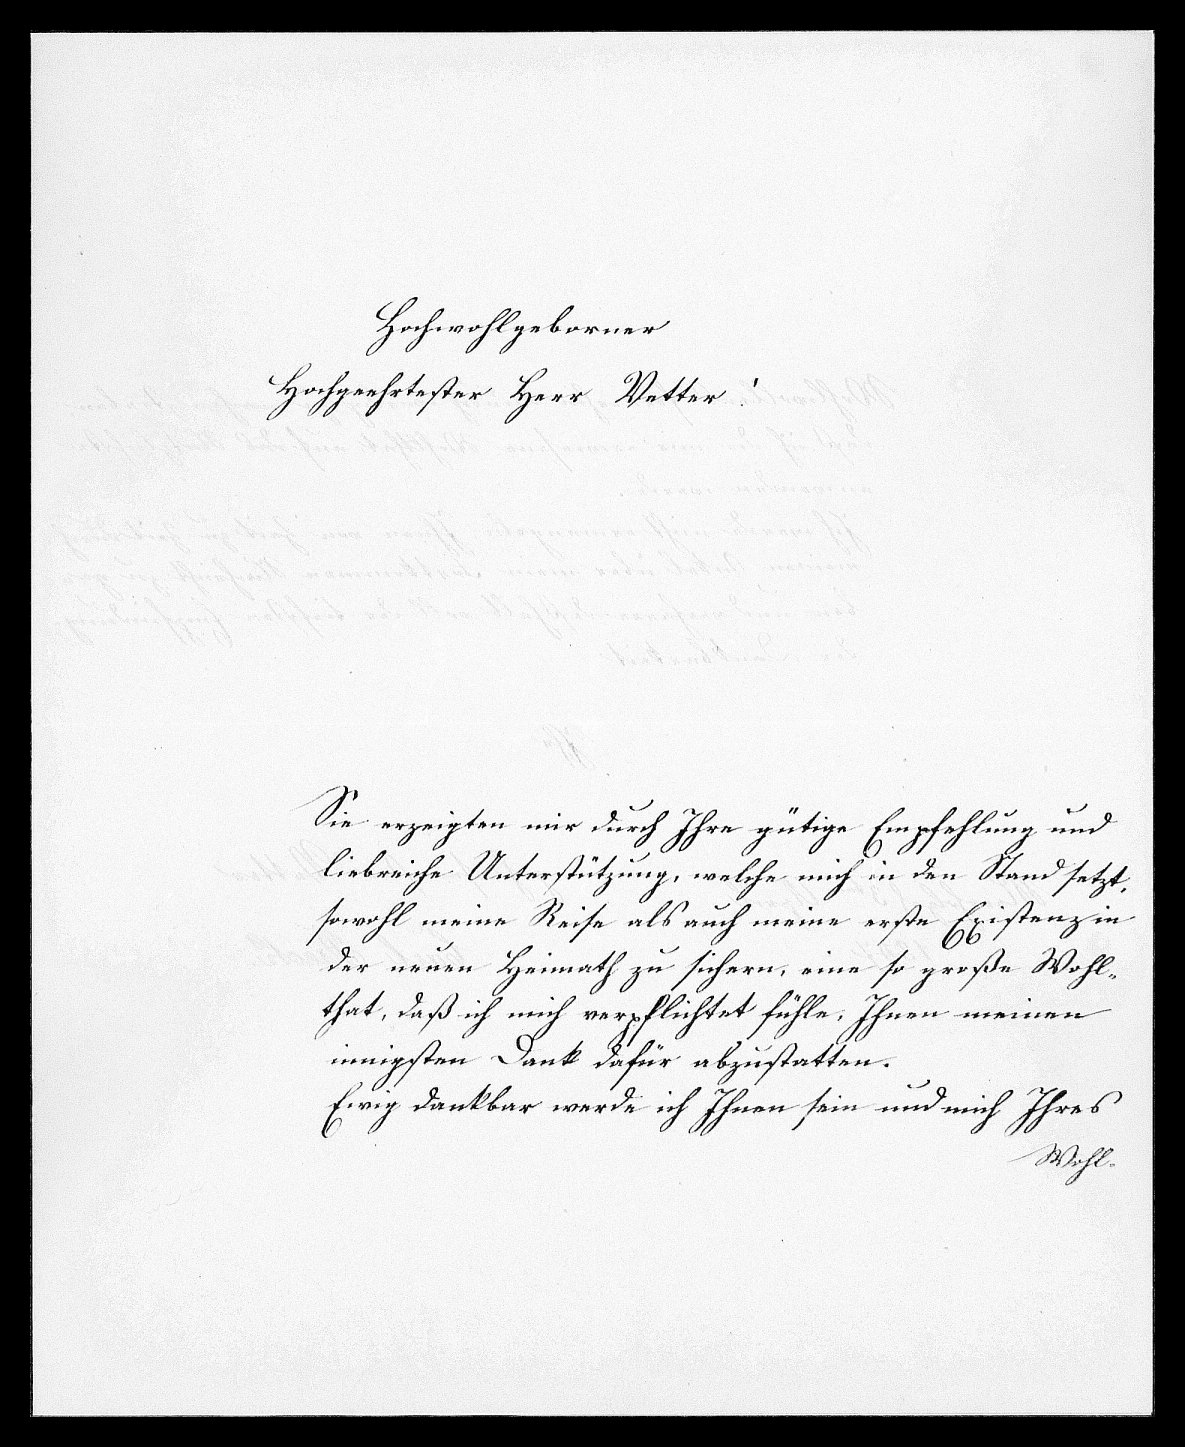 Hochwohlgeborner
Hochgeehrtester Herr Vetter!
Sie erzeigten mir durch Ihre gütige Empfehlung und
liebreiche Unterstützung, welche mich in den Stand setzt,
sowohl meine Reise als auch meine erste Existenz in
der neuen Heimath zu sichern, eine so große Wohl-
that, daß ich mich verpflichtet fühle, Ihnen meinen
innigsten Dank dafür abzustatten.
Ewig dankbar werde ich Ihnen sein und mich Ihres
Wohl-